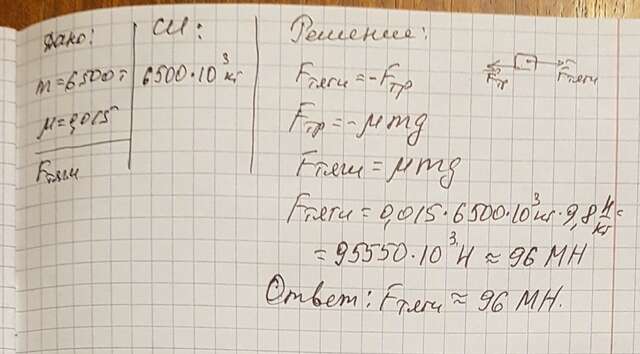 Дано:
m=6500т
μ=0,015
Fтяги
СИ:
6500·10³кг
Решение:
Fтяги=-Fтр
Fтр Fтяги
Fтр=-μmg
Fтяги=μmg
Fтяги=0,015·6500·10³кг·9,8Н/кг=
=95550·10³Н≈96 МН
Ответ: Fтяги≈96 МН.